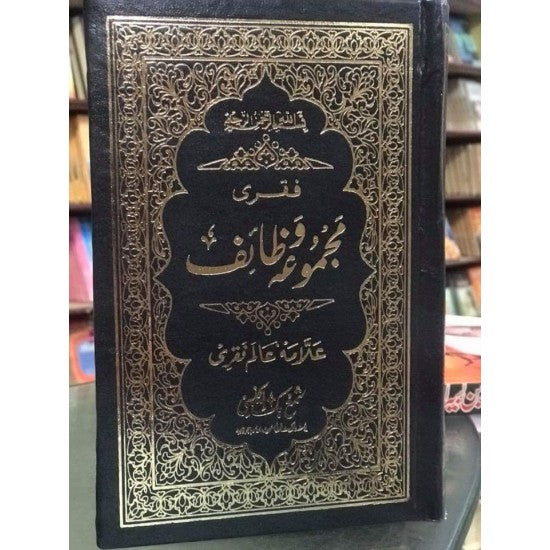 بسم اللہ الرحمن الرحیم
فقری
مجموعہ وظائف
علامہ عالم فقری
شمع بک ایجنسی